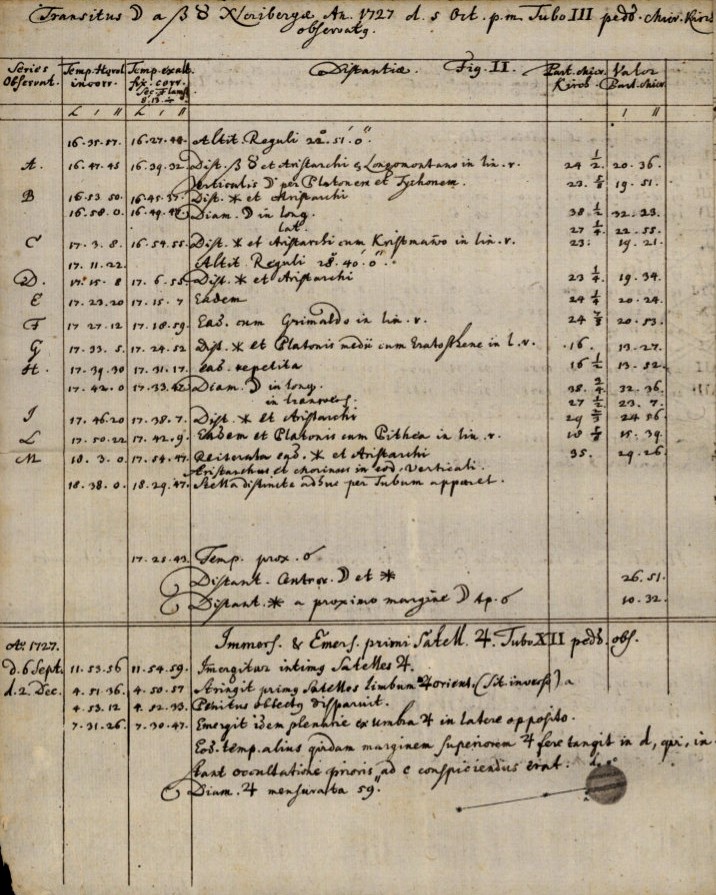 Transitus ☽ a β ♉ Nseribergæ An. 1727 d. 5 Oct. p.m. Tubo III pedū. Micr. Kirch
observatq.
Series Observat. Temp. Horol incorr. Temp. ex alt. fix. corr. Sec. Flamst. Distantiæ Fig. II. Part. micr. Kirch. Valor Part. micr.
16.35.57. 16.27.44. Altit. Reguli 22°.51'.0".
A. 16.47.45 16.39.32. Dist. β ♉ et Aristarchi c. Longomontano in lin. r. 24 1/2 20.36.
Verticalis ☽ per Platonem et Tychonem. 23. 5/8 19.51.
B 16.53.50. 16.45.37. Dist. * et Aristarchi
16.58.0. 16.49.47. Diam. ☽ in long. 38 1/2 32.23.
lat. 27 1/4 22.55.
C 17.3.8. 16.54.55. Dist. * et Aristarchi cum Kristmanno in lin. r. 23. 19.21.
17.11.22. Altit. Reguli 28°.40'.0".
D. 17.15.8 17.6.55. Dist. * et Aristarchi 23 1/4 19.34.
E 17.23.20 17.15.7 Eadem 24 1/4 20.24.
F 17.27.12 17.18.59. Ead. cum Grimaldo in lin. r. 24 7/8 20.53.
G 17.33.5. 17.24.52 Dist. * et Platonis medii cum Eratosthene in l. r. 16. 13.27.
H. 17.39.30 17.31.17. Ead. repetita 16 1/2 13.52.
17.42.0 17.33.42. Diam. ☽ in long. 38. 3/4 32.36.
in transvers. 27 1/2 23.7.
I 17.46.20 17.38.7. Dist. * et Aristarchi 24 56
L 17.50.22 17.42.9. Eadem et Platonis cum Pithea in lin. r. 18 5/8 15.39.
M 18.3.0. 17.54.47. Reiterata * et Aristarchi 35. 29.26.
Aristarchus et in eod. verticali.
18.38.0. 18.29.47. Stella distincte adhuc per Tubum apparet.
17.25.43. Temp. prox. ☌
Distant. Centror. ☽ et * 26.51.
Distant. * a proximo margine ☽ tp. ☌ 10.32.
Aō. 1727. Immers. & Emers. primi Satell. ♃. Tubo XII pedū. obs.
d. 6 Sept. 11.53.56 11.54.59. Imergitur intimq Satelles ♃.
d. 2. Dec. 4.51.36. 4.50.57 Stringit primq Satelles limbum ♃ orient. (Sit. invers.) a
4.53.12 4.52.33. Penitus obtectq disparuit.
7.31.26. 7.30.47. Emergit idem plenarie ex umbra ♃ in latere opposito.
Eod. temp. alius quidam marginem superiorem ♃ fere tangit in d, qui, in-
stant occultatione prioris ad c conspiciendus erat.
Diam. ♃ mensurata 59".